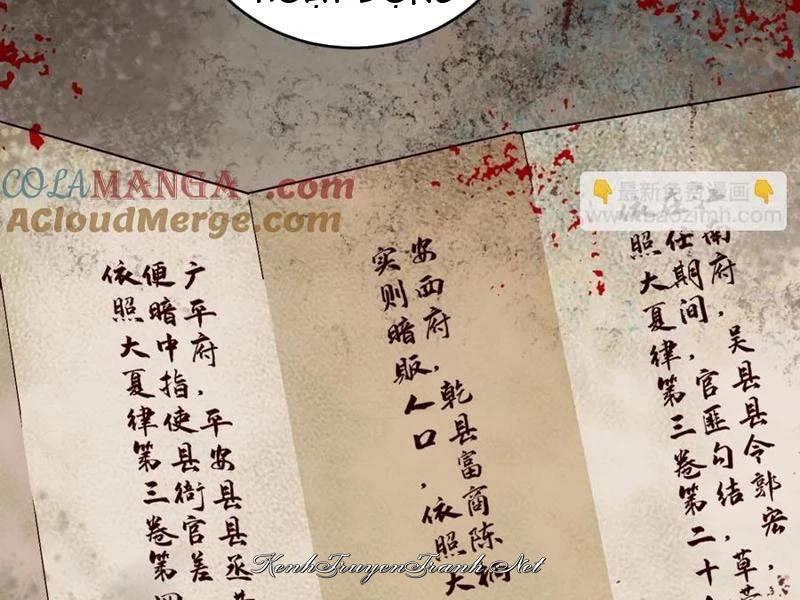 COLAMANGA.com
ACloudMerge.com
最新免费漫画
www.baozimh.com
开府，吴县县令郭宏，
任期间，官匪勾结，草菅
依照大夏律第三卷第二十
安西府，乾县富商陈
实则暗贩人口，依照大
广平府，平安县县丞
便暗中指使县衙官差
依照大夏律第三卷第四
KenhTruyenTranh.Net